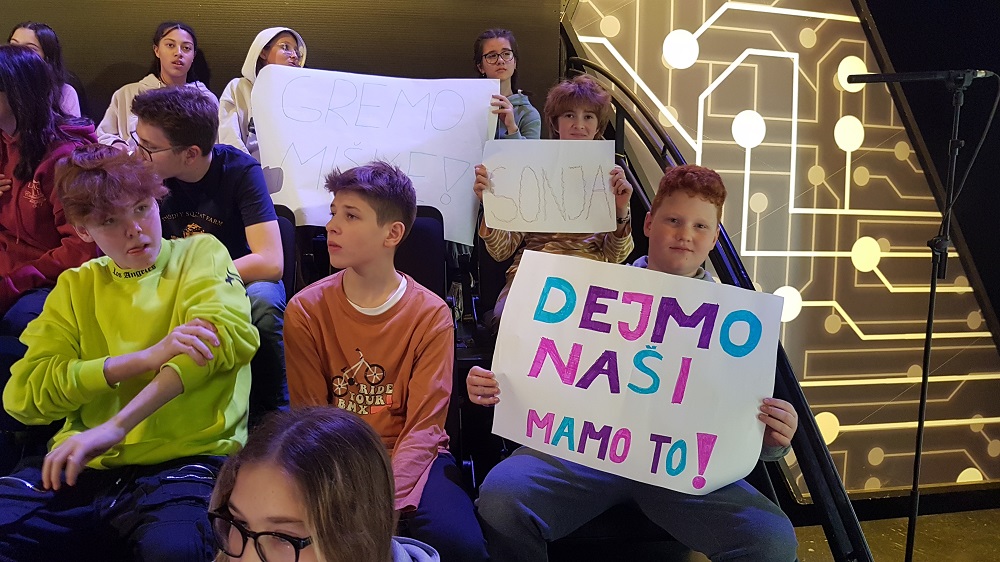 GREMO
MIŠKE!
SONJA
DEJMO
NAŠI
MAMO TO!
Los Angeles
RIDE
YOUR
BMX